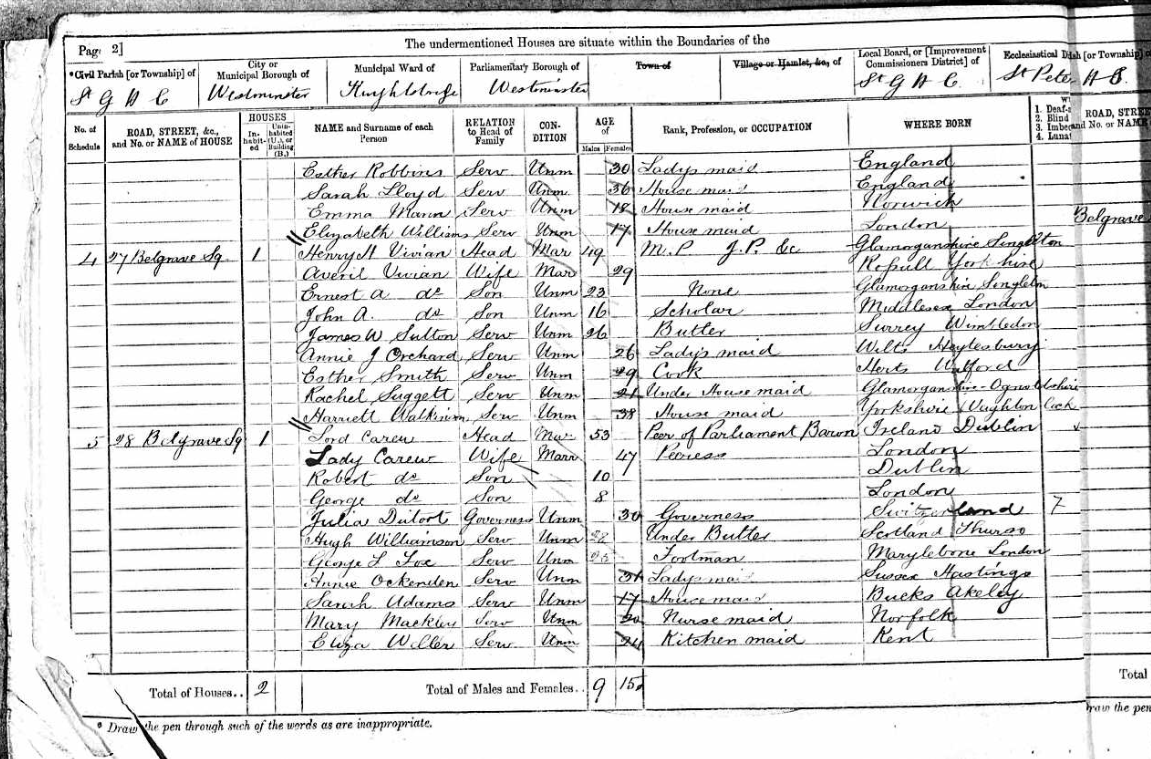 Page 2]
The undermentioned Houses are situate within the Boundaries of the
*Civil Parish [or Township] of
City or Municipal Borough of
Municipal Ward of
Parliamentary Borough of
Town of
Village or Hamlet, &c., of
Local Board, or [Improvement Commissioners District] of
Ecclesiastical
St G H C
Westminster
Knightsbridge
Westminster
St G H C
St Peter
No. of Schedule
ROAD, STREET, &c., and No. or NAME of HOUSE
HOUSES
In-habit-ed
Unin-habited (U.), or Building (B.)
NAME and Surname of each Person
RELATION to Head of Family
CON-DITION
AGE of
Males Females
Rank, Profession, or OCCUPATION
WHERE BORN
1. Deaf-
2. Blind
3. Imbec
4. Lunat
Esther Robbins Serv Unm 30 Ladys maid England
Sarah Lloyd Serv Unm 36 House maid England
Emma Mann Serv Unm 18 House maid Norwich
Elizabeth Williams Serv Unm 17 House maid London
4 27 Belgrave Sq 1 Henry H Vivian Head Mar 49 M.P J.P. &c Glamorganshire Singleton
Averil Vivian Wife Mar 29 Yorkshire
Ernest A do Son Unm 23 None Glamorganshire Singleton
John A. do Son Unm 16 Scholar Middlesex London
James W Sutton Serv Unm 26 Butler Surrey Wimbledon
Annie J Orchard Serv Unm 26 Lady's maid Wilts Heytesbury
Esther Smith Serv Unm 29 Cook Herts Watford
Rachel Suggett Serv Unm 21 Under House maid Glamorganshire
Harriett Serv Unm 38 House maid Yorkshire Wighton
5 28 Belgrave Sq 1 Lord Carew Head Mar 53 Peer of Parliament Baron Ireland Dublin
Lady Carew Wife Marr 47 Peeress London
Robert do Son 10 Dublin
George do Son 8 London
Julia Dutort Governess Unm 30 Governess Switzerland
Hugh Williamson Serv Unm Under Butler Scotland Thurso
George L Fox Serv Unm Footman Marylebone London
Annie Ockenden Serv Unm 31 Ladys maid Sussex Hastings
Sarah Adams Serv Unm 17 House maid Bucks Akeley
Mary Serv Unm Nurse maid Norfolk
Eliza Weller Serv Unm 24 Kitchen maid Kent
Total of Houses.. 2
Total of Males and Females.. 9 15
* Draw the pen through such of the words as are inappropriate.
[or Township]
ROAD, STREE
and No. or NAME
Belgrave
Total
raw the pen